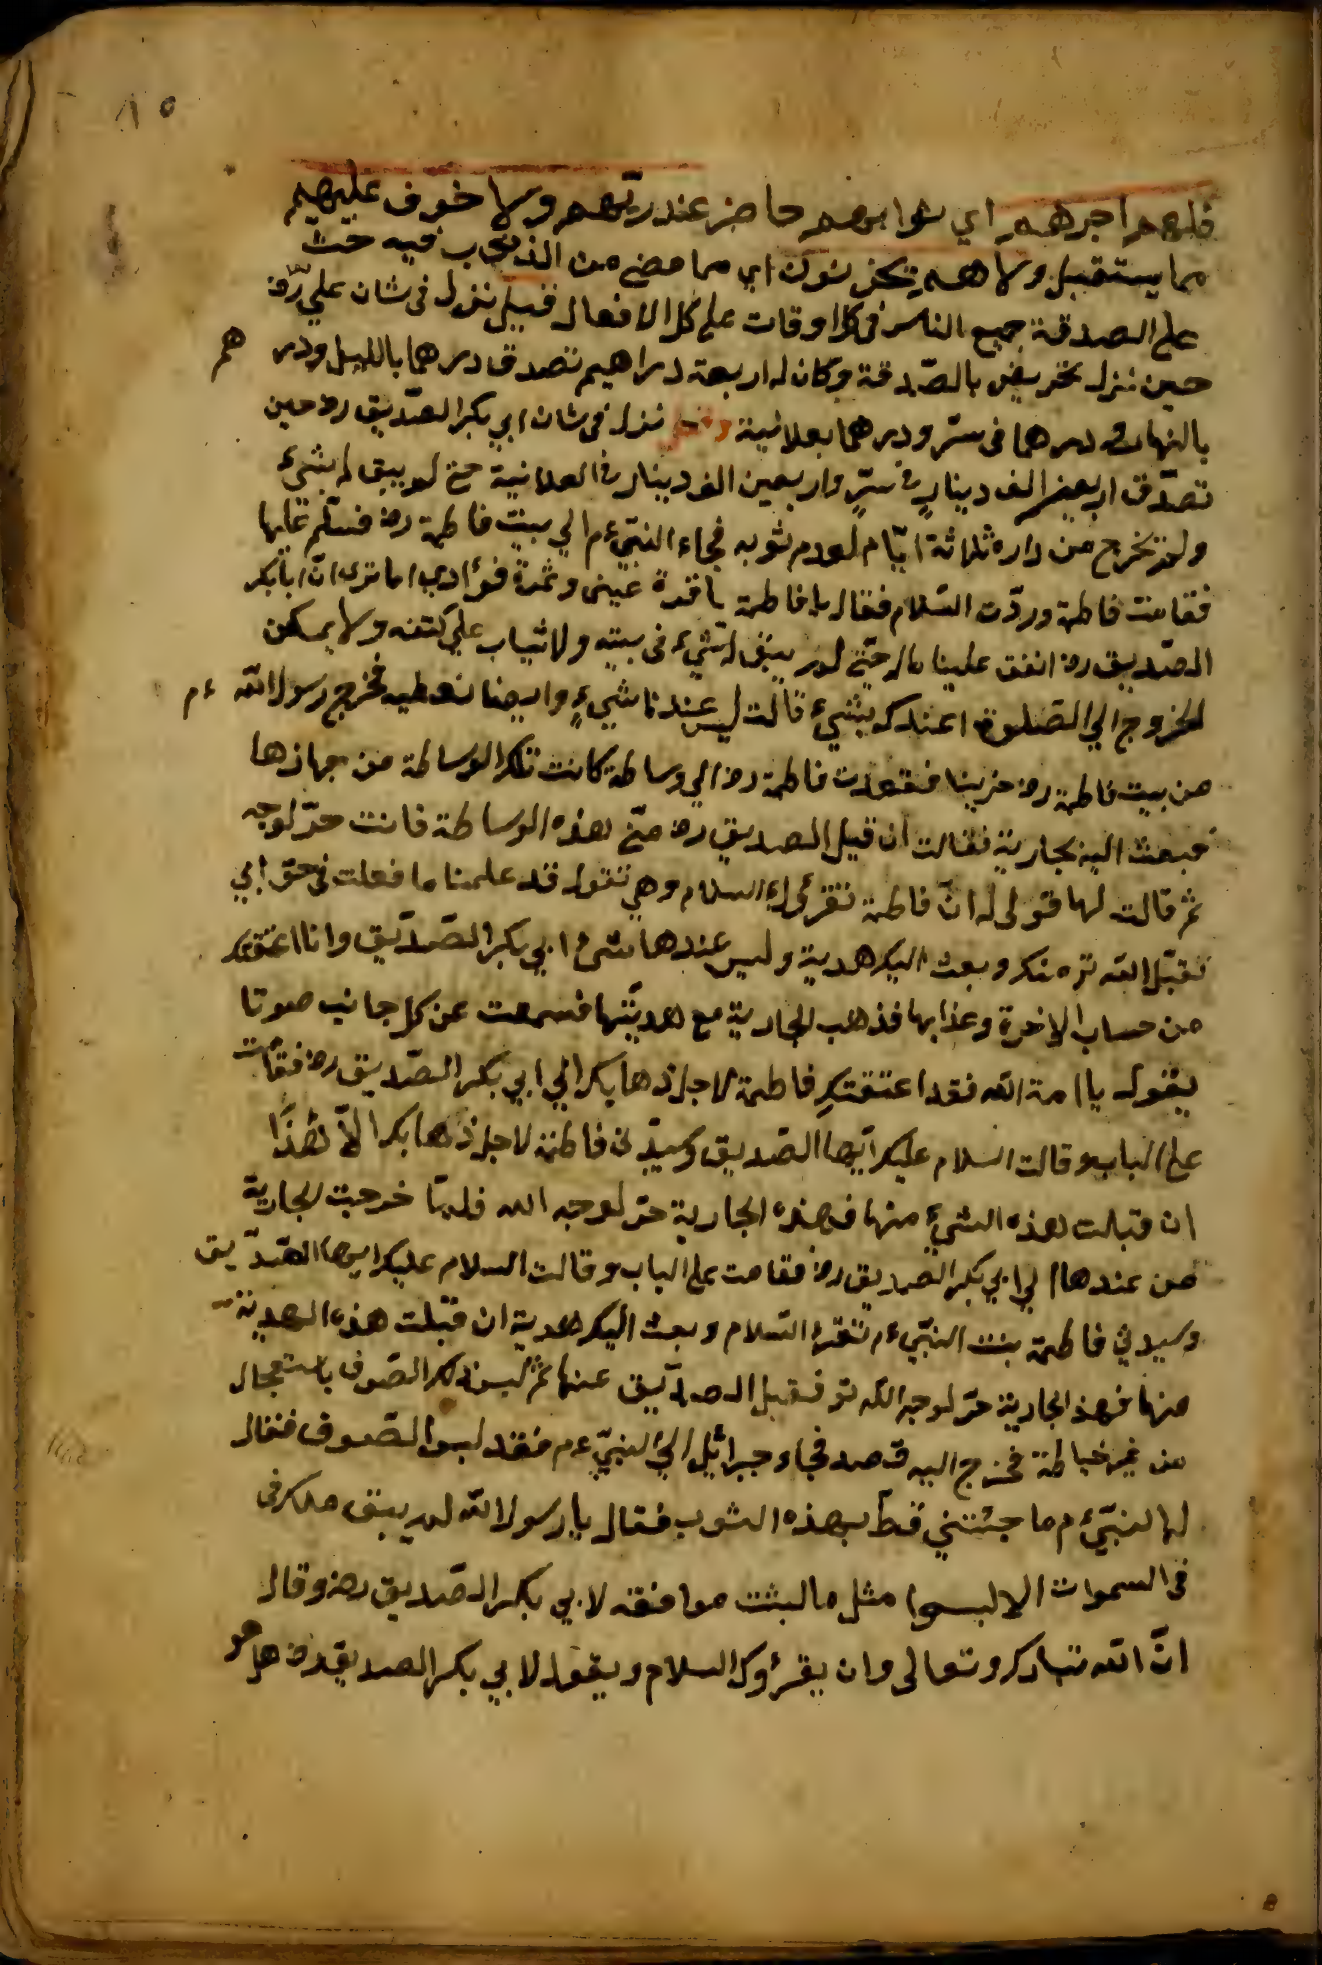 ١٥
فلهم اجرهم اي ثوابهم حاضر عند ربّهم ولا خوف عليهم
مما يستقبل ولا هم يحزنون اي مما مضى من الذنوب فيه حثّ
على الصدقة جميع الناس فى كل اوقات على كل الافعال قيل نزل فى شان علي رض
حين نزل تحريض بالصّدقة وكان له اربعة دراهيم تصدق درهما بالليل ودرهم
بالنهار ودرهما فى سرّ ودرهما بعلانية نزل فى شان ابي بكر الصّديق رض حين
تصدّق اربعين الف دينارٍ فى سرٍّ واربعين الف دينار فى العلانية حتى لم يبق له شيء
ولم يخرج من داره ثلاثة ايّام لعدم ثوبه فجاء النبيّ ءم الي بيت فاطمة رض فسلّم عليها
فقامت فاطمة وردّت السّلام فقال يا فاطمة يا قرة عينى وثمرة فؤادي اما ترى انّ ابابكر
الصّديق رض انفق علينا ماله حتّى لم يبق له شيء فى بيته ولا ثياب على كتفه ولا يمكن
الخروج الي الصّلوة اعندك بشيء قالت ليس عندنا شيءٍ وايضا نعطيه فخرج رسول الله ءم
من بيت فاطمة رض حزينا فقعدت فاطمة رض الي وساطة كانت تلك الوساطة من جهازها
فبعث اليه بجارية فقالت ان قبل الصديق رض منّى هذه الوساطة فانت حرّ لوجه
ثم قالت لها قولى له انّ فاطمة تقرئك السلام وهي تقول قد علمنا ما فعلت فى حق ابي
تقبّل الله تع منك وبعث اليك هدية وليس عندها شيء ابي بكر الصّدّيق وانا اعتقتك
من حساب الاخرة وعذابها فذهب الجارية مع هديّتها فسمعت عن كل جانب صوتا
يقول يا امة الله فقد اعتقتكِ فاطمة لاجل ذهابك الي ابي بكر الصّديق رض فقامت
على الباب وقالت السلام عليك ايّها الصّديق وسيدتى فاطمة لاجل ذهابك الاّ لهذا
ان قبلت هذه الشيء منها فهذه الجارية حرّ لوجه الله فلمّا خرجت الجارية
من عندها الي ابي بكر الصديق رض فقامت على الباب وقالت السلام عليك ايها الصّدّيق
وسيدتي فاطمة بنت النبيّ ءم تقرأ السّلام وبعث اليك هدية ان قبلت هذه الهدية
منها فهذه الجارية حرّ لوجه الله تع فقبل الصدّيق عنها ثم لبس ذلك الصّوف باستعجال
من غير خياطة فخرج اليه قصد فجاء جبرائيل الي النبيّ ءم فقد لبس الصّوف فقال
لها النبيّ ءم ما جئتني قطّ بهذه الثوب فقال يا رسول الله لم يبق ملك فى
فى السموات الا لبسوا مثل ما لبثت موافقه لابي بكر الصّديق رض وقال
انّ الله تبارك وتعالى وان يقرؤك السلام ويقول لابي بكر الصديق رض هل هو